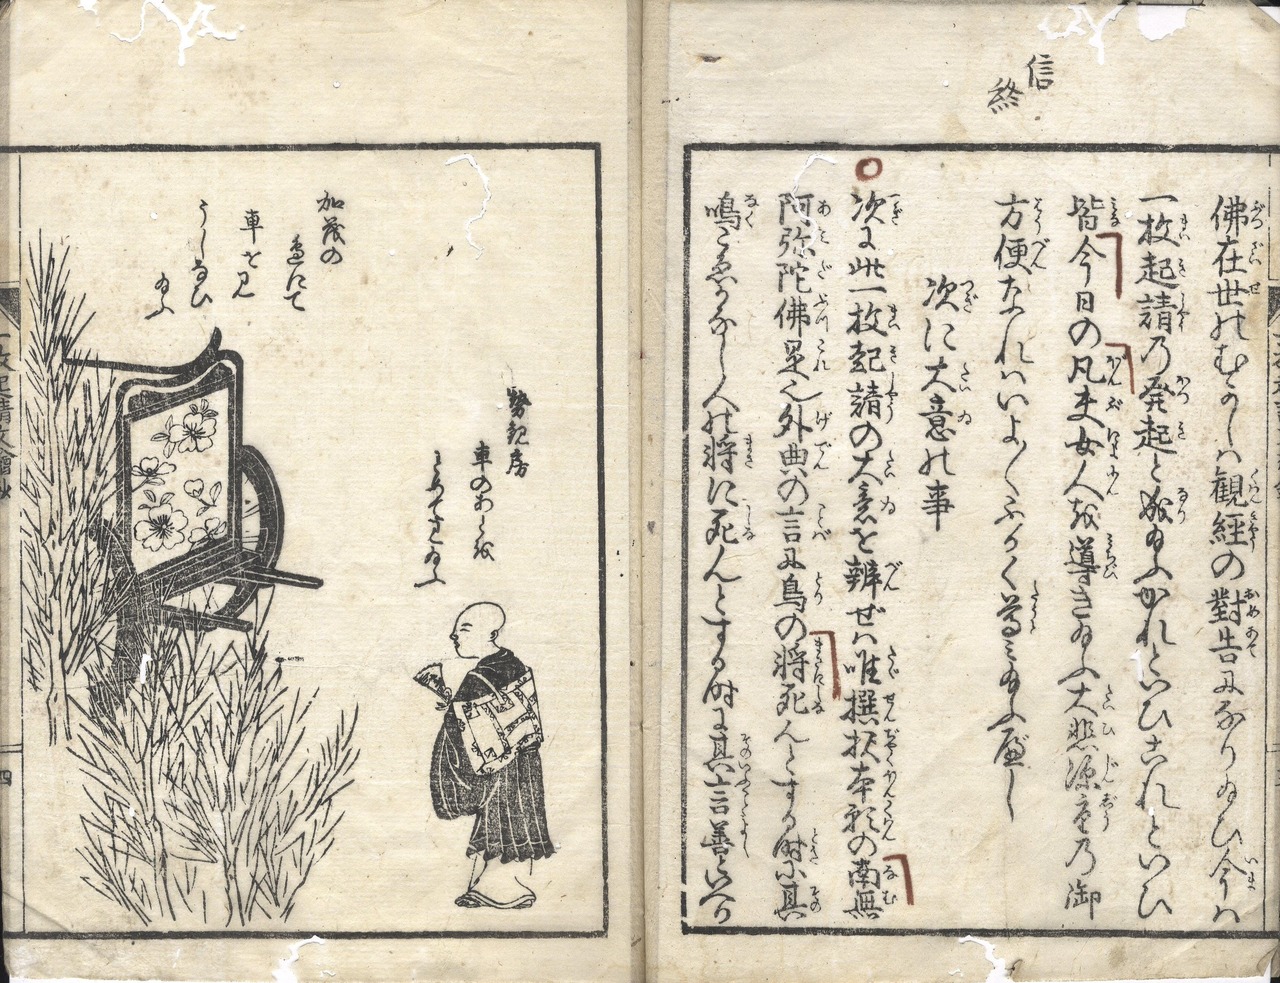 信
終
佛在世のむかしハ観經の對告になり給ひ今ハ
一枚起請乃発起と成給ふかれといひこれといひ
皆今日の凡夫女人を導き給ふ大悲源空乃御
方便なれハいよ〱ふかく尊ミ給ふ べし
次に大意の事
次に此一枚起請の大意を辨ぜハ唯撰択本願の南無
阿弥陀佛是也外典の言に鳥の将死んとする時ハ其
鳴こゑかなし人の将に死んとする時に其言善といへり
加茂の
邊にて
車を見
うしなひ
給ふ
勢観房
車のあとを
したひ
給ふ
一枚起請文繪抄
四